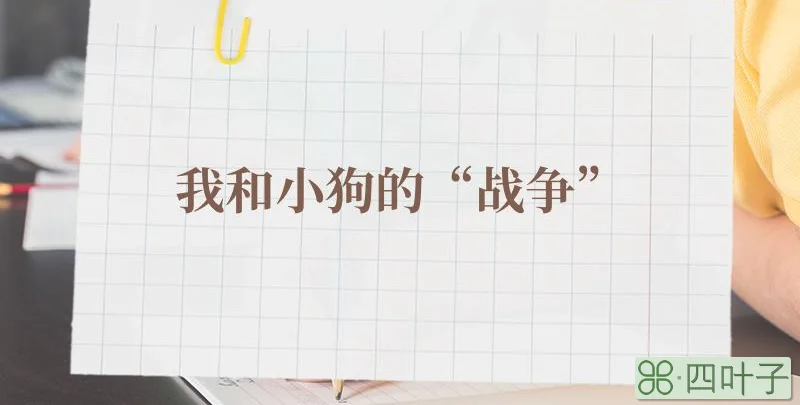 我和小狗的“战争”
四叶子